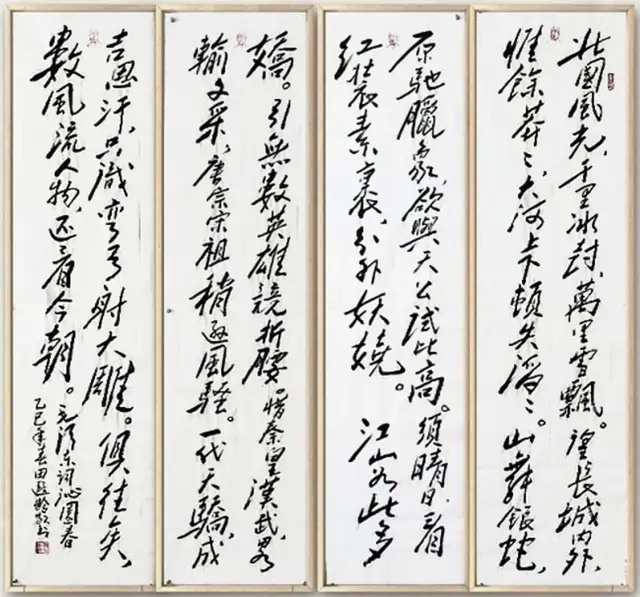 北國風光，千里冰封，萬里雪飄。望長城內外，
惟餘莽々，大河上下頓失滔々。山舞銀蛇，
原馳臘象，欲與天公試比高。須晴日，看
紅裝素裹，分外妖嬈。江山如此多
嬌。引無數英雄競折腰。惜秦皇漢武，略
輸文采，唐宗宋祖稍遜風騷。一代天驕，成
吉思汗，只識弯弓射大雕。俱往矣，
數風流人物，还看今朝。
毛澤东詞沁園春
乙巳年春田